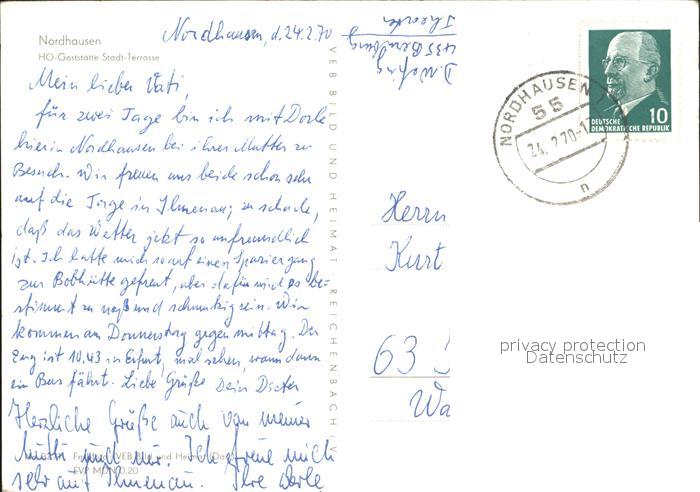 Nordhausen
HO-Gaststätte Stadt-Terrasse
Nordhausen, d. 24.2.70
Mein lieber Vati,
für zwei Tage bin ich mit Dorle
hier in Nordhausen bei ihrer Mutter zu
Besuch. Wir freuen uns beide schon sehr
auf die Tage in Ilmenau; zu schade,
daß das Wetter jetzt so unfreundlich
ist. Ich hatte mich so auf einen Spaziergang
zur Bobhütte gefreut, aber dafür wird es be-
stimmt zu naß und schmutzig sein. Wir
kommen am Donnerstag gegen mittag. Der
Zug ist 10.43 in Erfurt, mal sehen, wann dann
ein Bus fährt. Liebe Grüße Dein Dieter
Herzliche Grüße auch von meiner
Mutti und mir. Ich freue mich
sehr auf Ilmenau. Ihre Dorle
VEB Bild und Heimat
EVP MDN 0,20
VEB BILD UND HEIMAT REICHENBACH I. V.
435 Bernburg
Theater
NORDHAUSEN 1
55
24. 2.70
n
10
DEUTSCHE
DEMOKRATISCHE REPUBLIK
Herrn
Kurt
63
privacy protection
Datenschutz